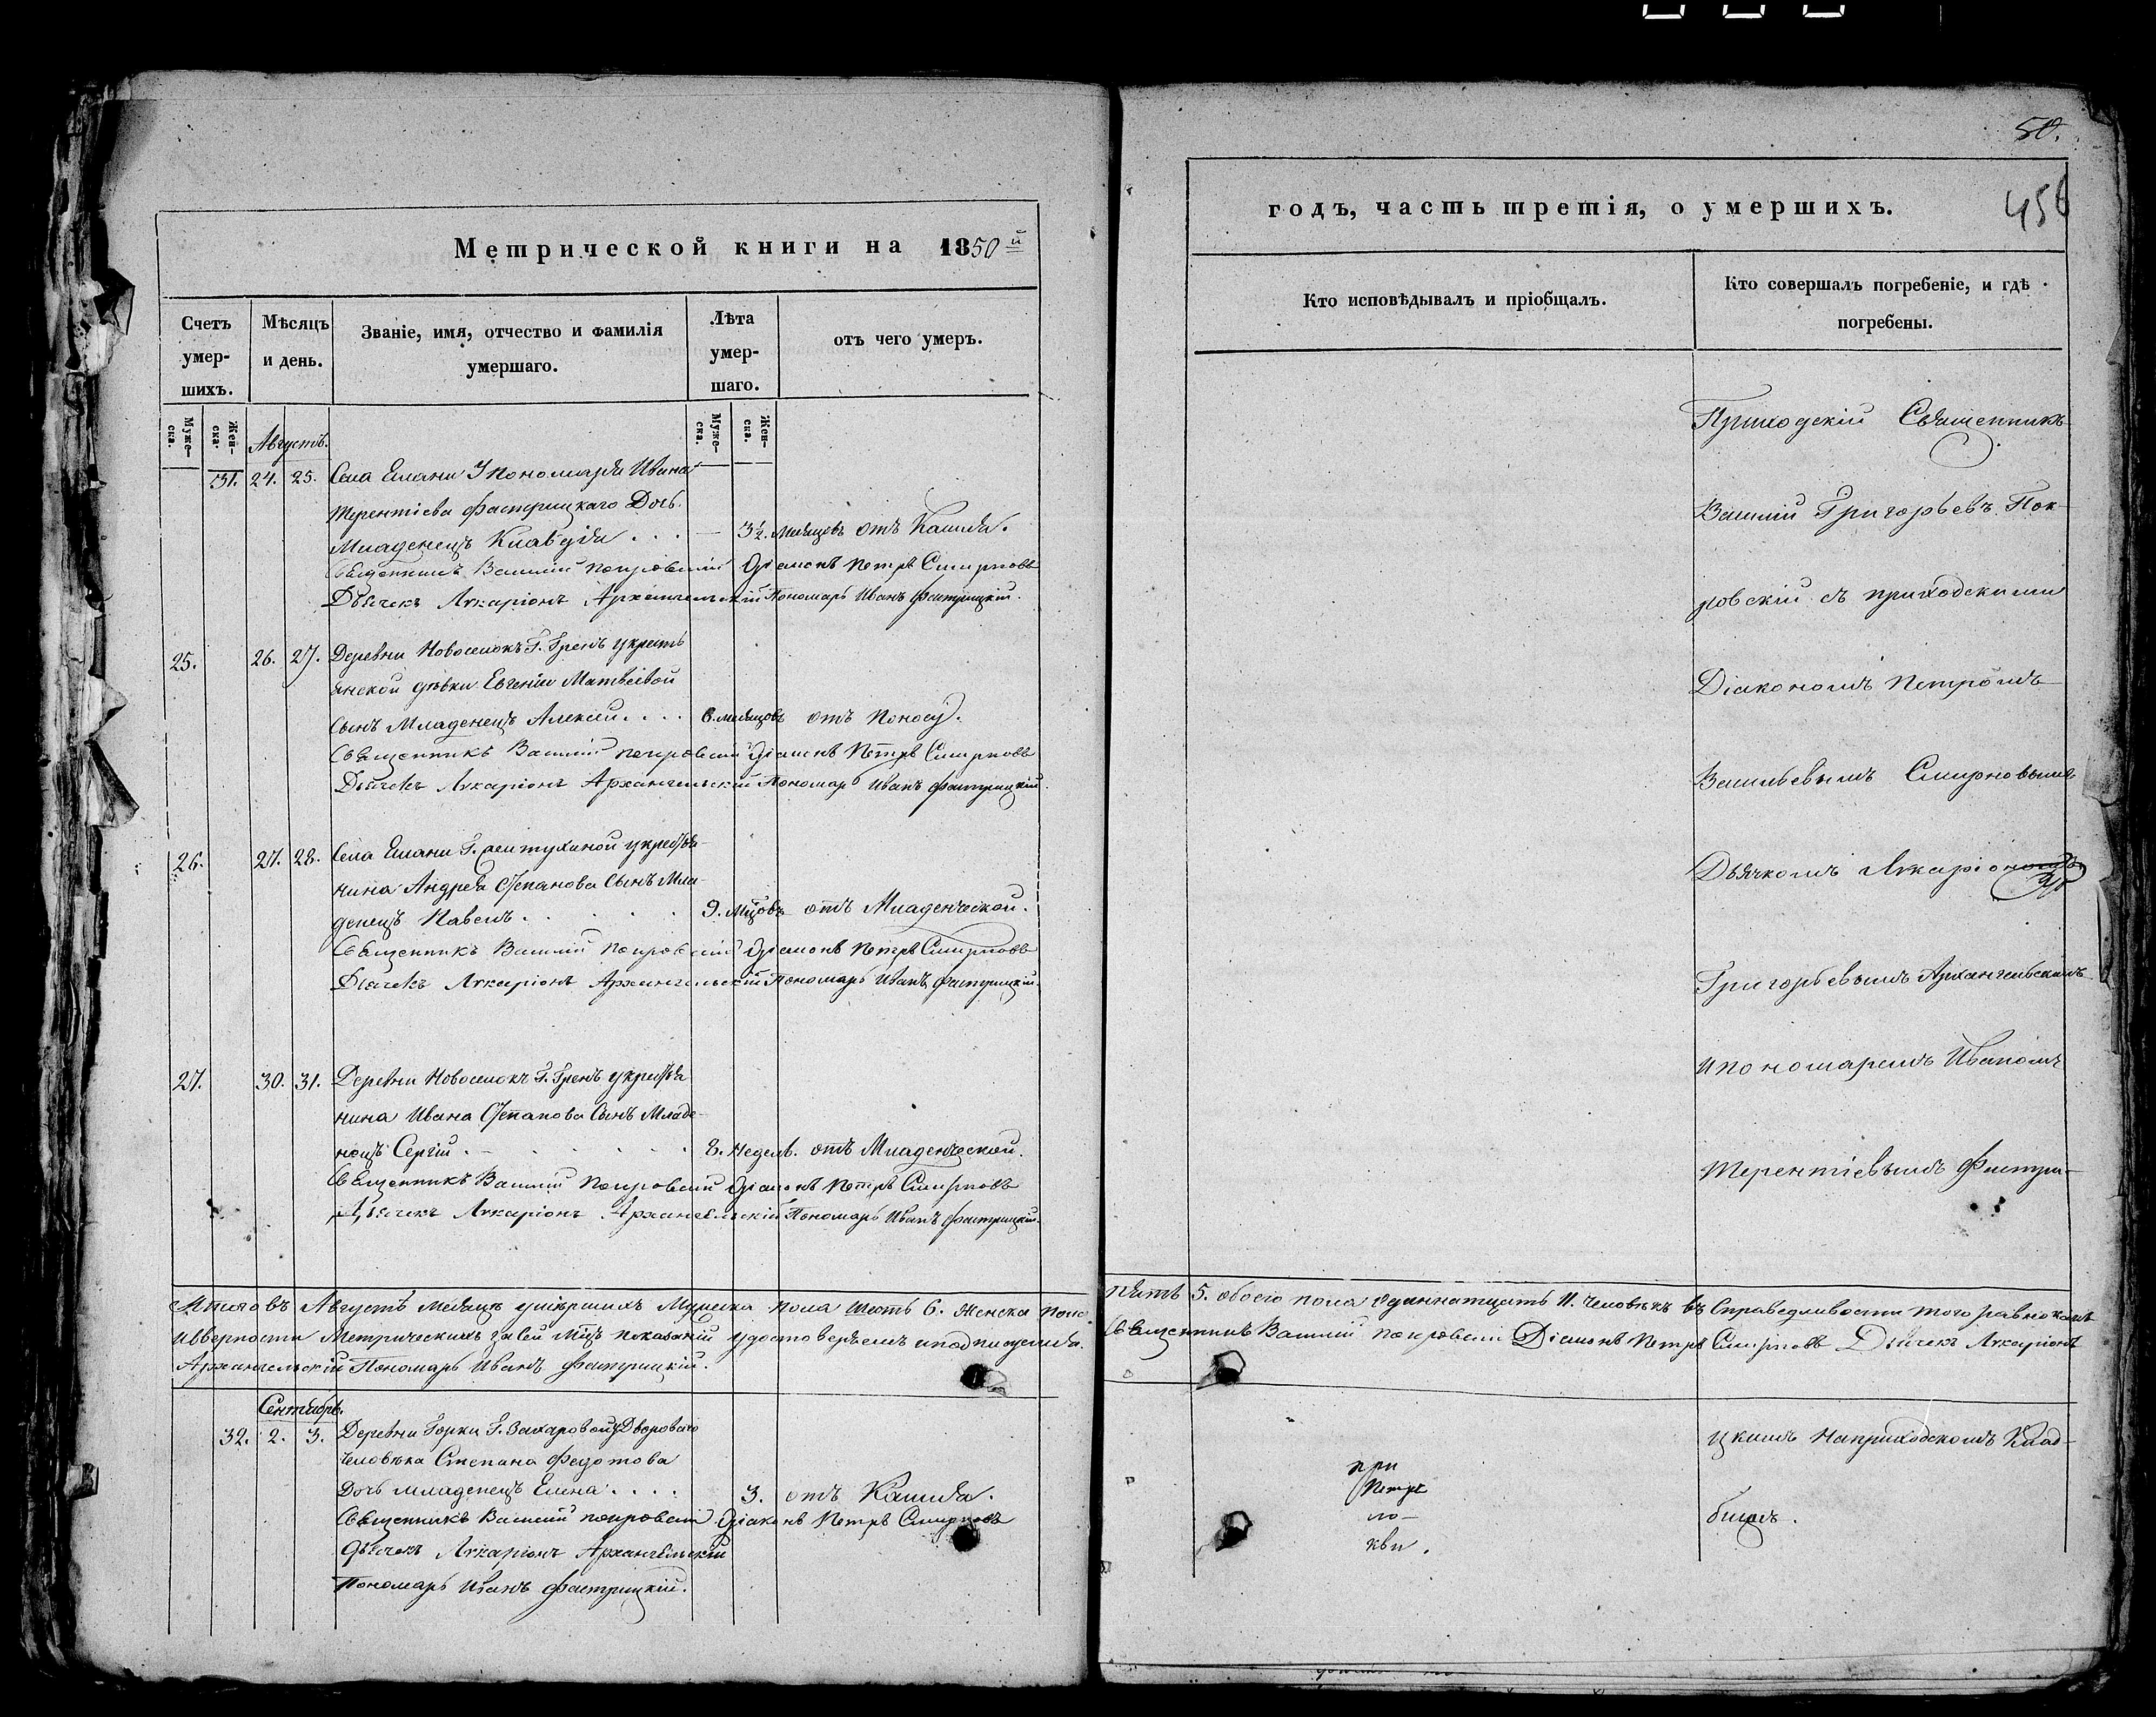 Метрической книги на 1850й
Счетъ умер-шихъ.
Мѣсяцъ и день.
Званіе, имя, отчество и фамилія умершаго.
Лѣта умер-шаго.
отъ чего умеръ.
Муже-ска.
Жен-ска.
Муже-ска.
Жен-ска.
Августъ.
31. 24. 25. Села Елани Упономаря Ивана
Терентіева Фастрицкаго Дочь
Младенецъ Клавдія . . . — 3½. месяцовъ отъ Кашля.
Священникъ Василій Покровскій Діаконъ Петръ Смирновъ
Дьячекъ Иларіонъ Архангельскій Пономарь Иванъ Фастрицкій.
25. 26. 27. Деревни Новоселокъ Г. Гренъ укресть
янской дѣвки Евгеніи Матвѣевой
Сынъ Младенецъ Алексѣй . . . . 6. месяцовъ отъ Поносу.
Священникъ Василій Покровскій Діаконъ Петръ Смирновъ
Дьячекъ Иларіонъ Архангельскій Пономарь Иванъ Фастрицкій.
26. 27. 28. Села Елани Г. укрестья-
нина Андрея Степанова Сынъ Мла-
денецъ Павелъ . . . . . 9. Мцовъ отъ Младенческой.
Священникъ Василій Покровскій Діаконъ Петръ Смирновъ
Дьячекъ Иларіонъ Архангельскій Пономарь Иванъ Фастрицкій.
27. 30. 31. Деревни Новоселокъ Г. Гренъ укрестья
нина Ивана Степанова Сынъ Младе-
нецъ Сергій . — . . . . 8. Недель. отъ Младенческой.
Священникъ Василій Покровскій Діаконъ Петръ Смирновъ
Дьячекъ Иларіонъ Архангельскій Пономарь Иванъ Фастрицкій.
Итого въ Августѣ месяцѣ умершихъ Мужеска пола шесть 6. Женска пола
Иверности Метрическихъ засей Мцъ показаній удостоверяемъ иподписуемся.
Архангельскій Пономарь Иванъ Фастрицкій.
Сентябрь.
32. 2. 3. Деревни Горки Г. Захаровой уДвороваго
человѣка Степана Федотова
Дочь младенецъ Елена . . . . 3. отъ Кашля.
Священникъ Василій Покровскій Діаконъ Петръ Смирновъ
Дьячекъ Иларіонъ Архангельскій
Пономарь Иванъ Фастрицкій.
50.
годъ, часть третія, о умершихъ.
456
Кто исповѣдывалъ и пріобщалъ.
Кто совершалъ погребеніе, и гдѣ погребены.
Приходскій Священникъ
Василій Григорьевъ Пок-
ровскій съ приходскими
Діакономъ Петромъ
Васильевымъ Смирновымъ
Дьячкомъ Иларіономъ
Григорьевымъ Архангельскимъ
ипономаремъ Иваномъ
Терентіевымъ Фастри-
пять 5. обоего пола одиннатцать 11. человѣкъ въ Справедливости того равно какъ
Священникъ Василій Покровскій Діаконъ Петръ Смирновъ Дьячекъ Иларіонъ
цкимъ Наприходскомъ Клад-
бищѣ.